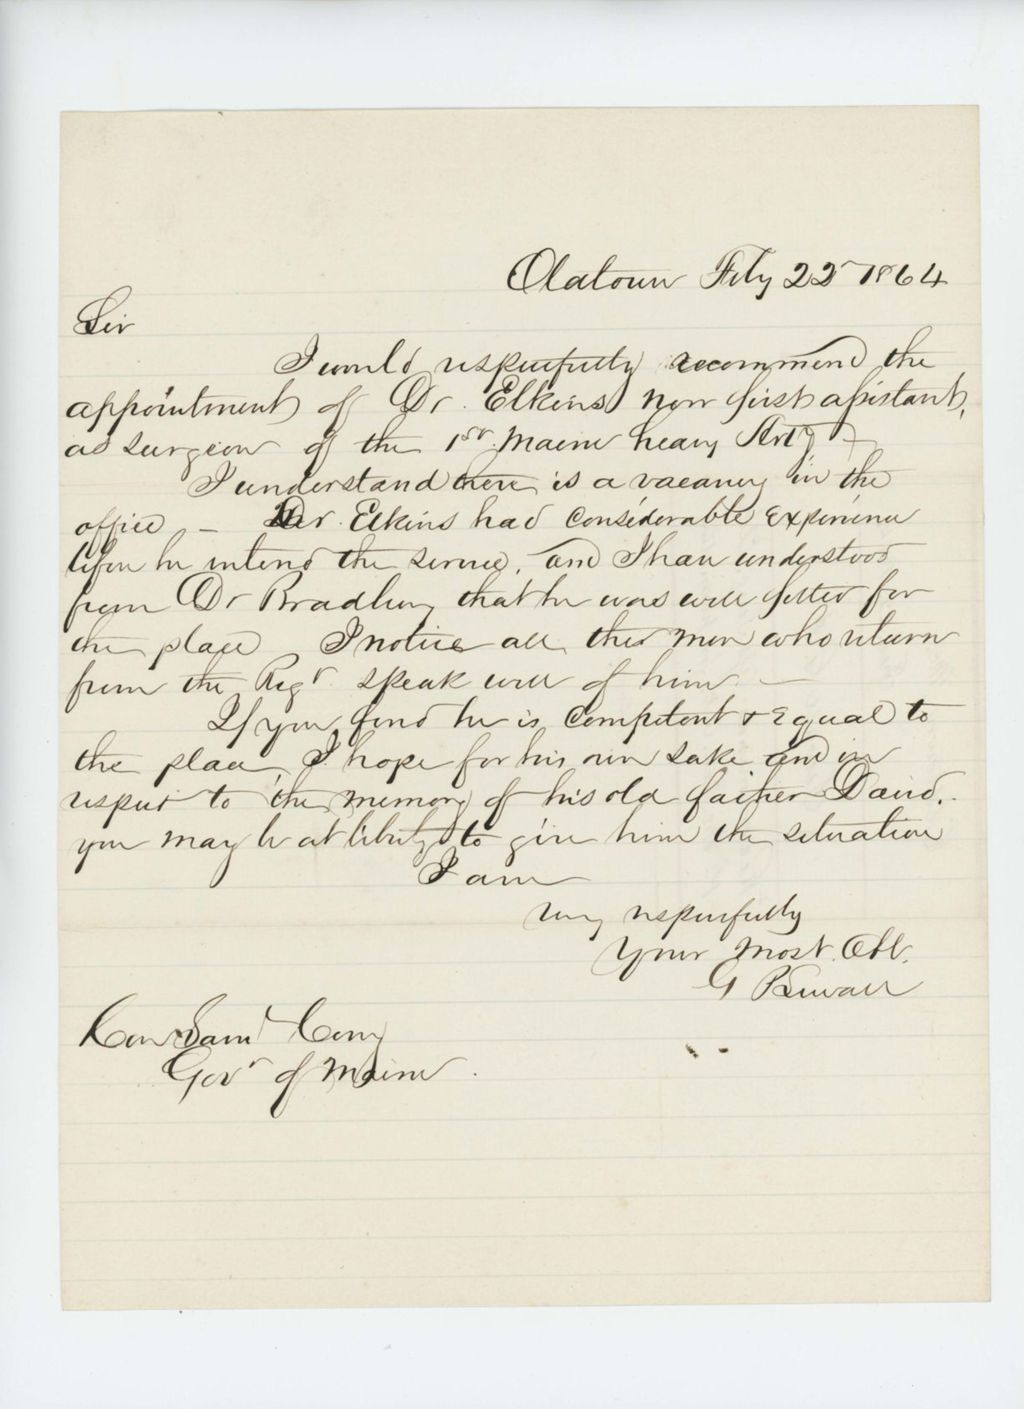 Oldtown Feby 22d 1864
Sir
I would respectfully recommend the
appointment of Dr. Elkins now first assistant,
as surgeon of the 1st Maine heavy Arty
I understand there is a vacancy in the
office – Dr. Elkins had considerable experience
before he entered the service, and I have understood
from Dr Bradbury that he was well fitted for
the place I notice all the men who return
from the Regt speak well of him –
If you find he is competent & equal to
the place, I hope for his own sake and in
respect to the memory of his old father David,
you may be at liberty to give him the situation
I am
very respectfully
Your most Obt.
G P Sewall
Hon Saml Cony
Govr of Maine.